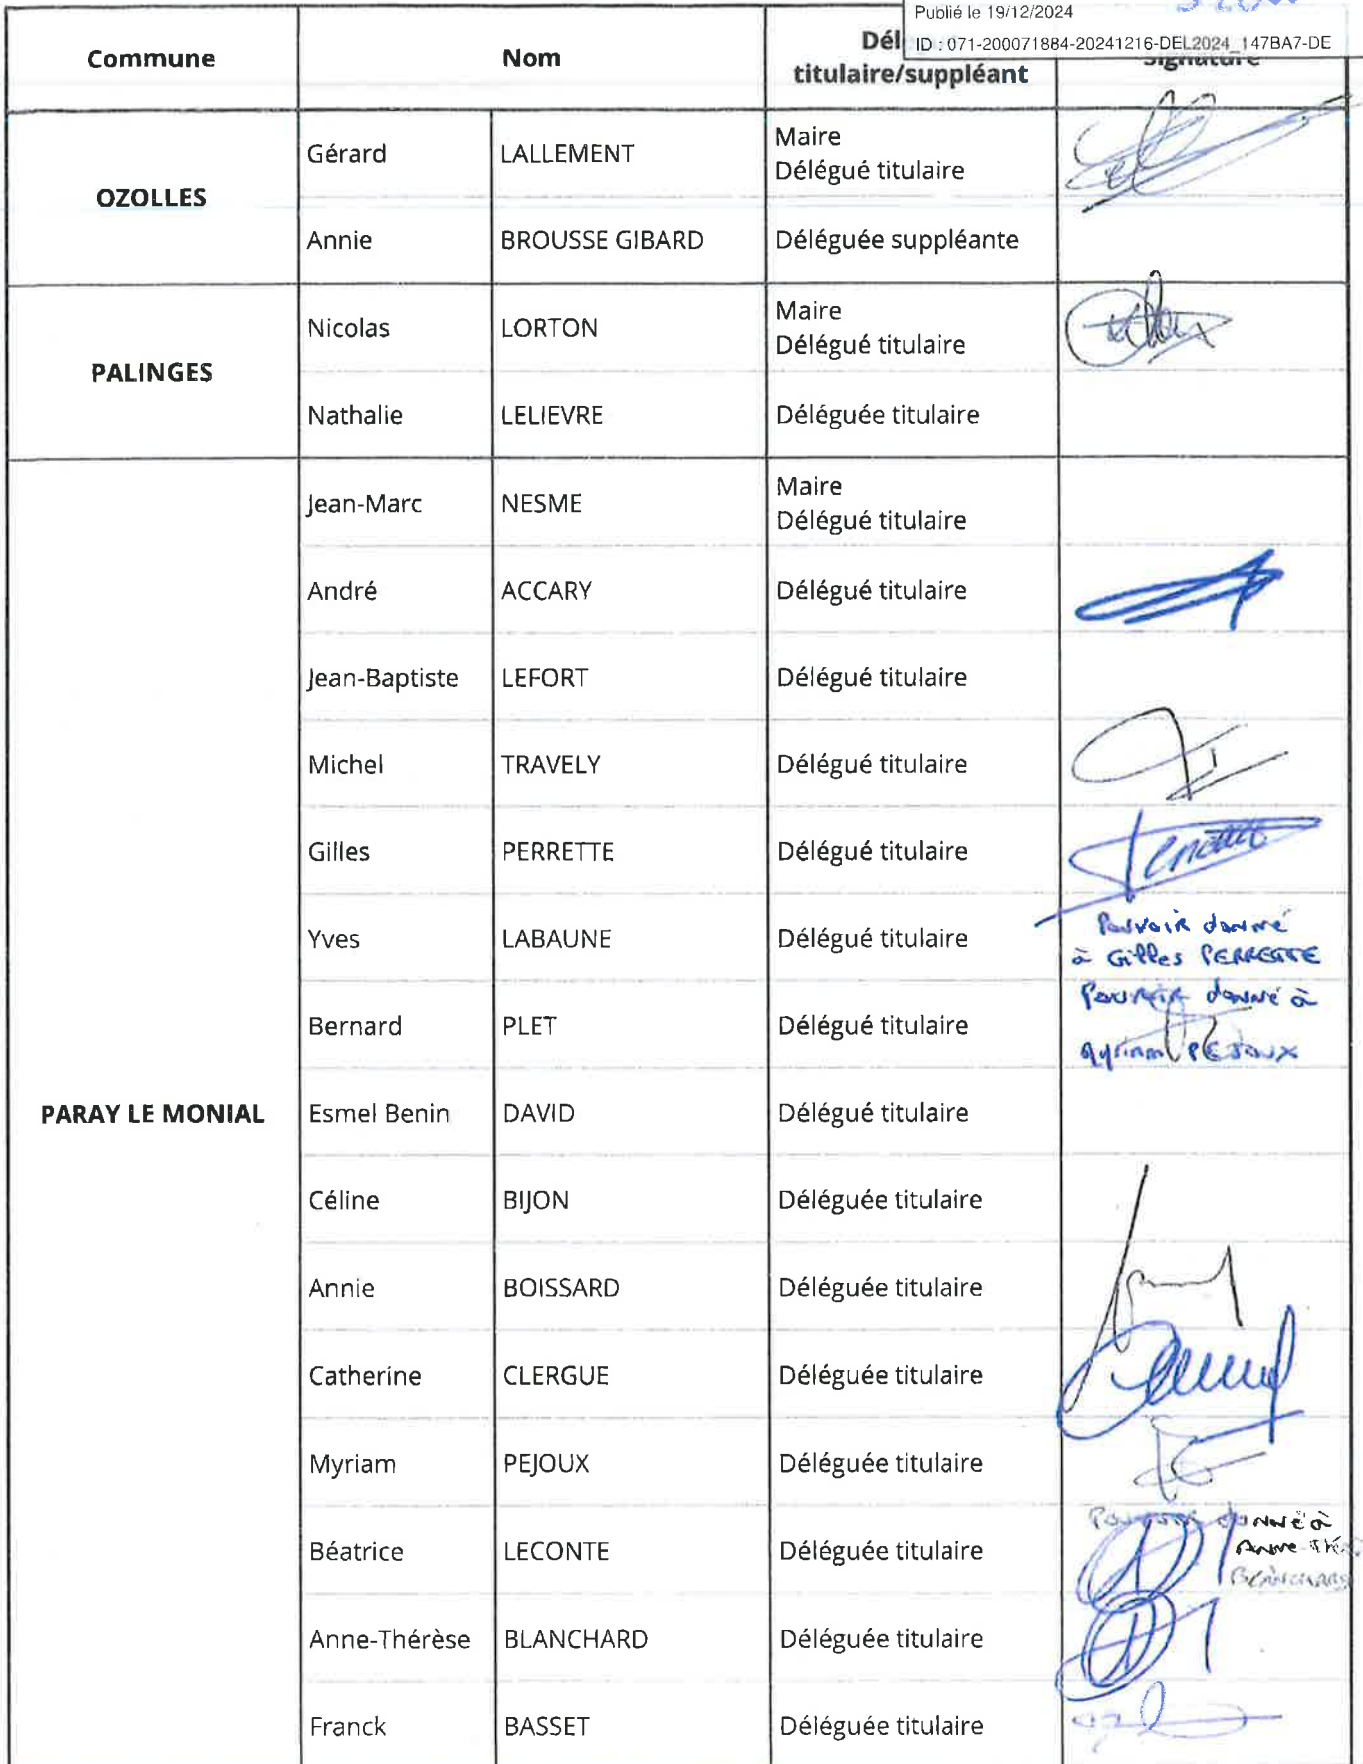 Publié le 19/12/2024
ID : 071-200071884-20241216-DEL2024_147BA7-DE
Commune
Nom
titulaire/suppléant
Signature
OZOLLES
Gérard LALLEMENT Maire
Délégué titulaire
Annie BROUSSE GIBARD Déléguée suppléante
PALINGES
Nicolas LORTON Maire
Délégué titulaire
Nathalie LELIEVRE Déléguée titulaire
PARAY LE MONIAL
Jean-Marc NESME Maire
Délégué titulaire
André ACCARY Délégué titulaire
Jean-Baptiste LEFORT Délégué titulaire
Michel TRAVELY Délégué titulaire
Gilles PERRETTE Délégué titulaire
Yves LABAUNE Délégué titulaire Pouvoir donné
à Gilles PERRETTE
Bernard PLET Délégué titulaire Pouvoir donné à
Myriam PEJOUX
Esmel Benin DAVID Délégué titulaire
Céline BIJON Déléguée titulaire
Annie BOISSARD Déléguée titulaire
Catherine CLERGUE Déléguée titulaire
Myriam PEJOUX Déléguée titulaire
Béatrice LECONTE Déléguée titulaire Pouvoir donné à
Anne
BLANCHARD
Anne-Thérèse BLANCHARD Déléguée titulaire
Franck BASSET Déléguée titulaire